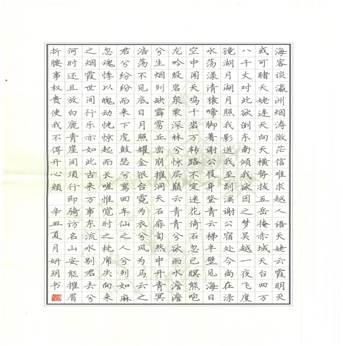 海客谈瀛洲烟涛微茫信难求越人语天姥云霞明灭
或可睹天姥连天向天横势拔五岳掩赤城天台四万
八千丈对此欲倒东南倾我欲因之梦吴越一夜飞度
镜湖月湖月照我影送我至剡溪谢公宿处今尚在渌
水荡漾清猿啼脚著谢公屐身登青云梯半壁见海日
空中闻天鸡千岩万转路不定迷花倚石忽已暝熊咆
龙吟殷岩泉栗深林兮惊层巅云青青兮欲雨水澹澹
兮生烟列缺霹雳丘峦崩摧洞天石扉訇然中开青冥
浩荡不见底日月照耀金银台霓为衣兮风为马云之
君兮纷纷而来下虎鼓瑟兮鸾回车仙之人兮列如麻
忽魂悸以魄动恍惊起而长嗟惟觉时之枕席失向来
之烟霞世间行乐亦如此古来万事东流水别君去兮
何时还且放白鹿青崖间须行即骑访名山安能摧眉
折腰事权贵使我不得开心颜 辛丑夏月妍玥书